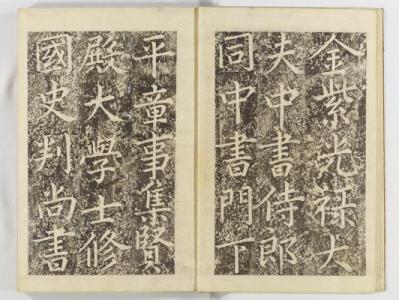 金紫光祿大
夫中書侍郎
同中書門下
平章事集賢
殿大學士修
國史判尚書